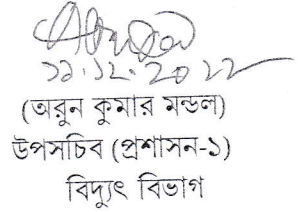 ২২.১২.২০২২
(অরুন কুমার মন্ডল)
উপসচিব (প্রশাসন-১)
বিদ্যুৎ বিভাগ